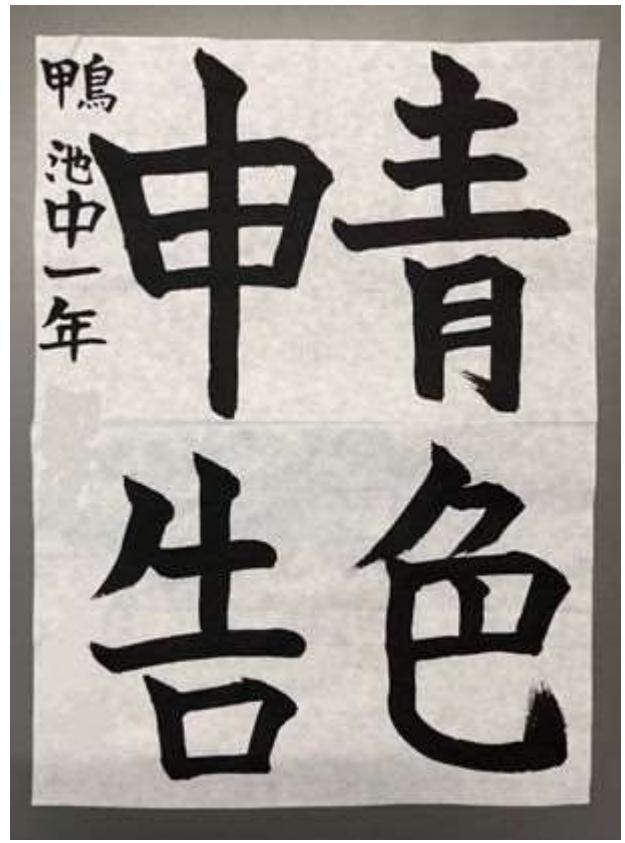 青色
申告
鴨池中一年